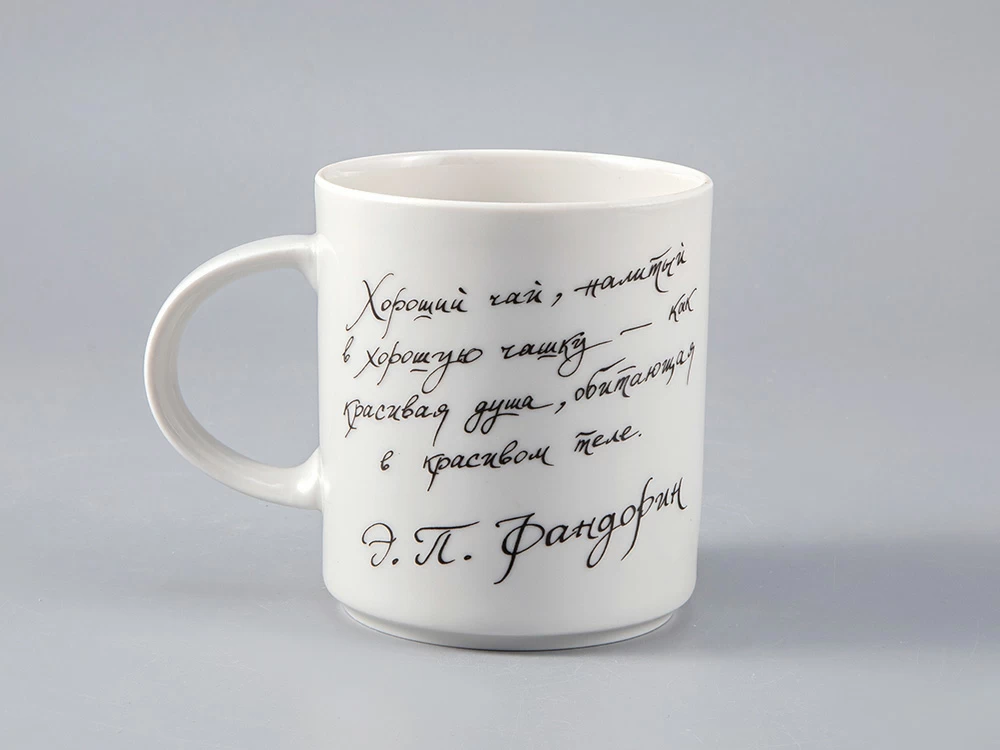 Хороший чай, налитый
в хорошую чашку — как
красивая душа, обитающая
в красивом теле.
Э. П. Фандорин